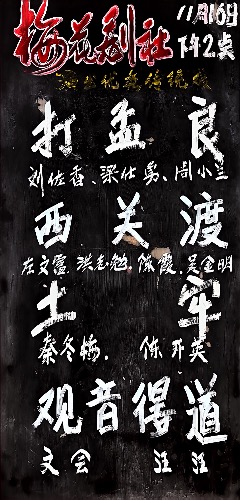 梅花剧社 11月16日
下午2点
演出优秀传统戏
打孟良
刘佐香、梁仕勇、周小兰
西关渡
左文霞、洪志勉、陈霞、吴金明
土牢
秦冬梅、陈开英
观音得道
文会 江江